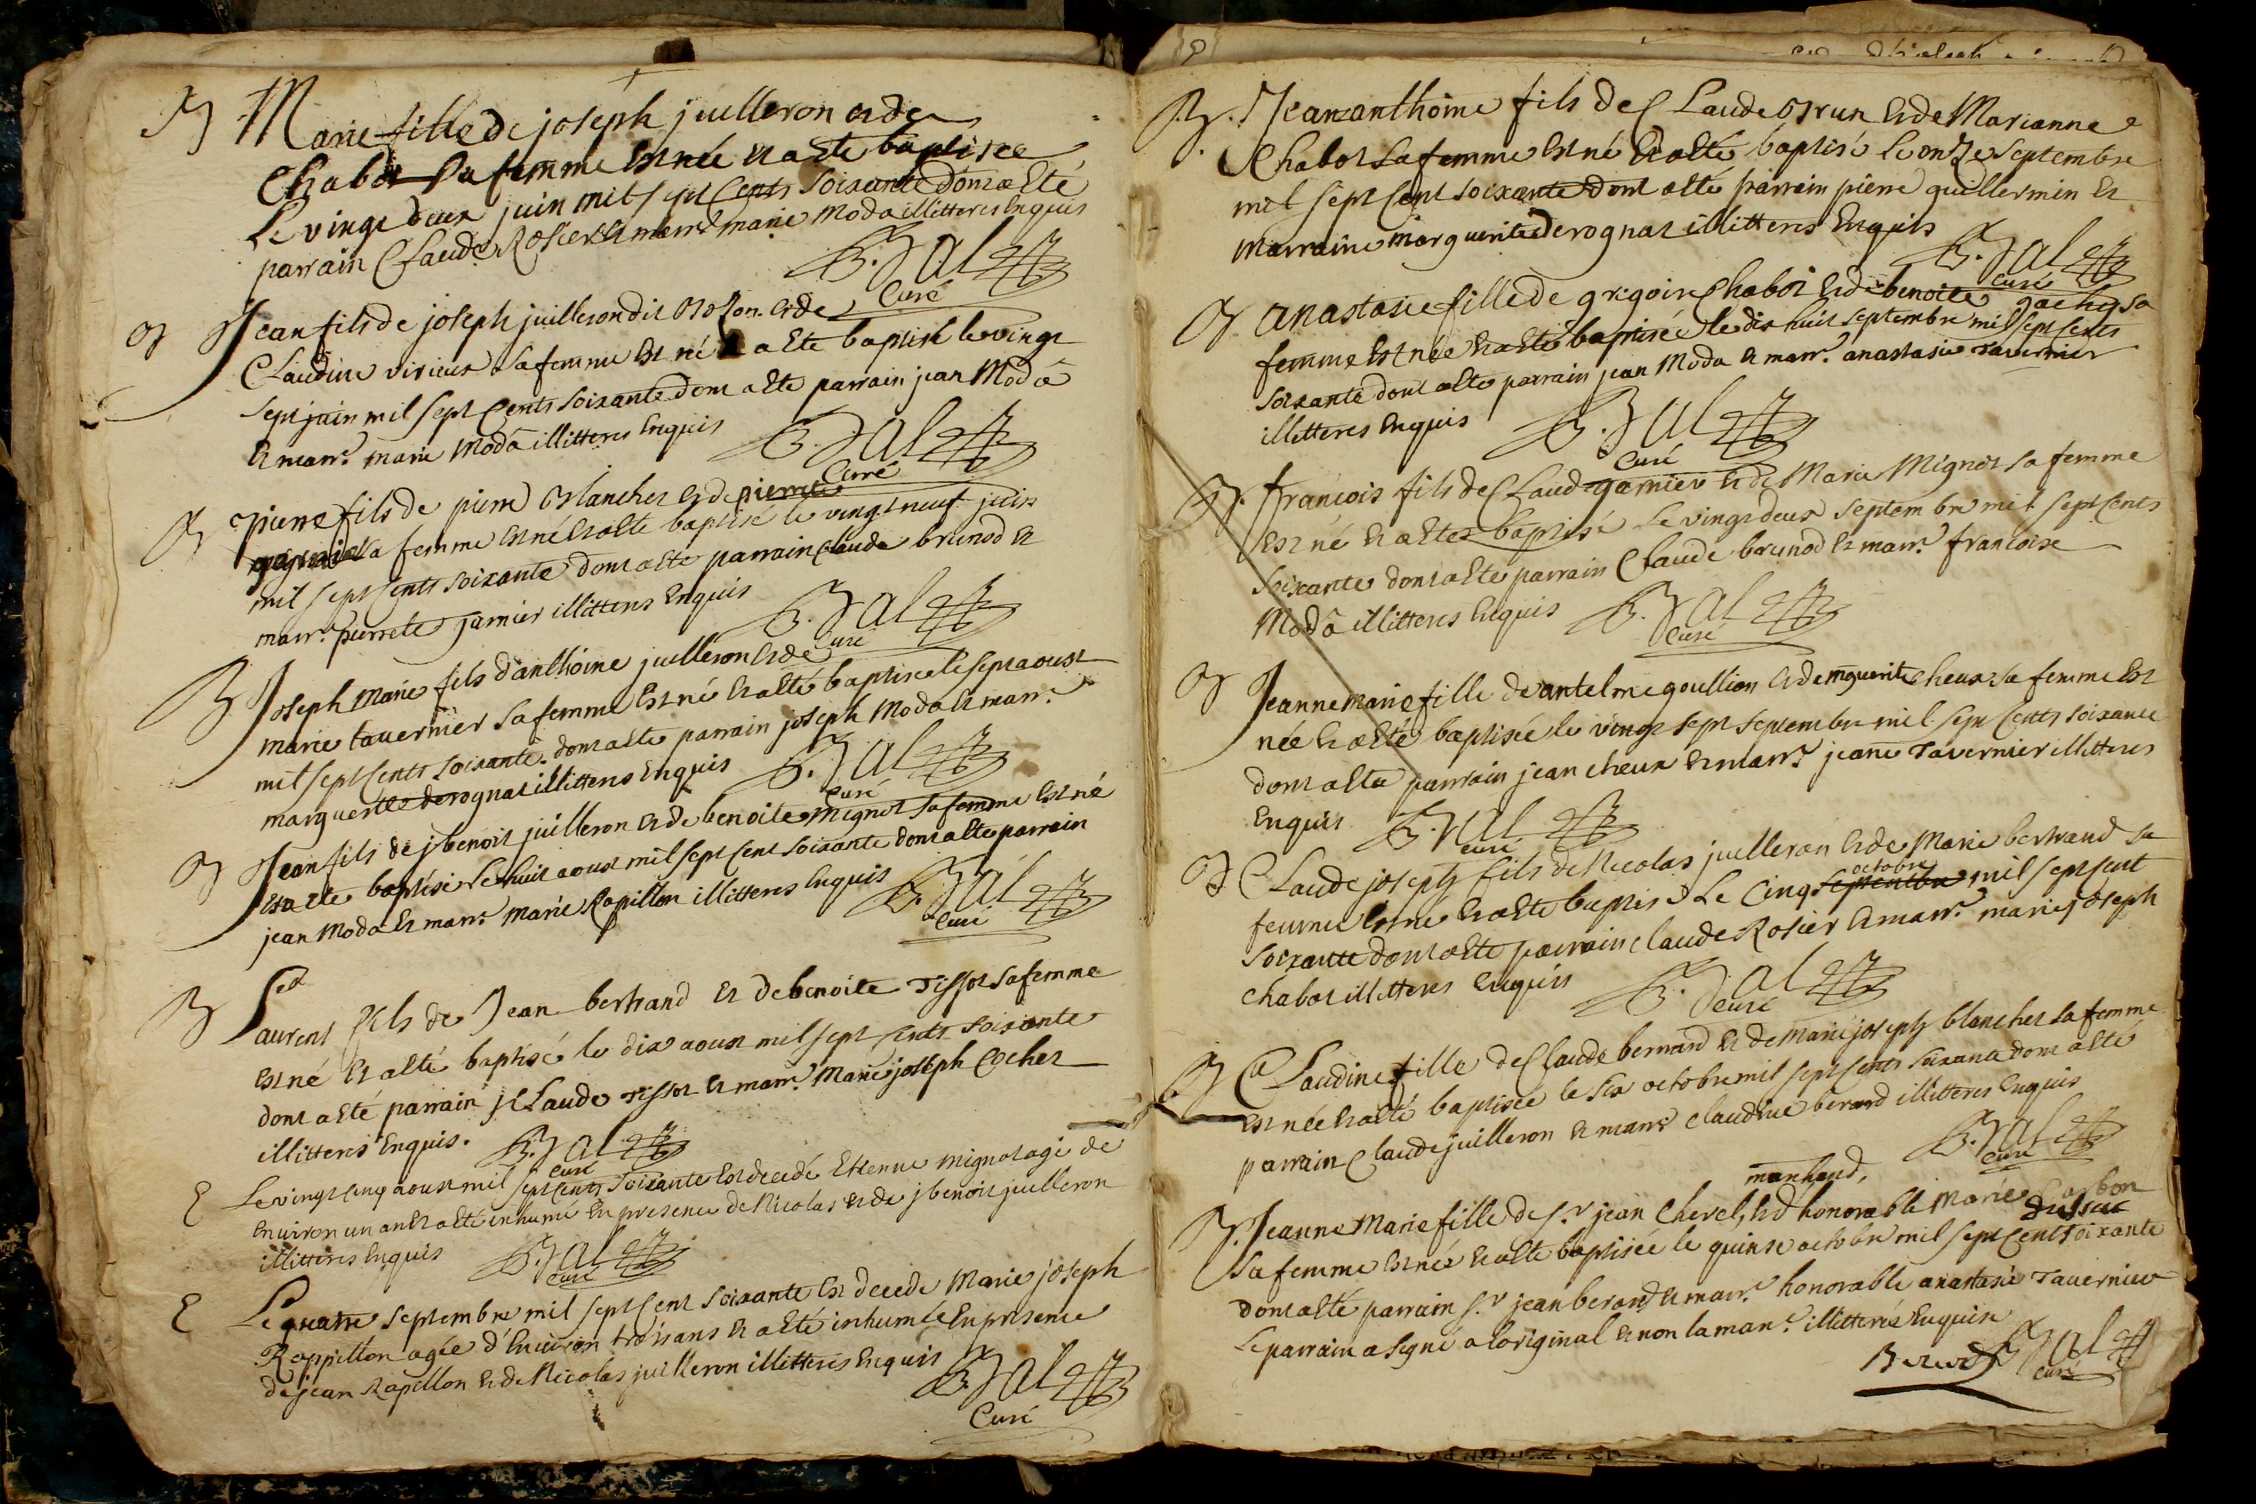 B Marie fille de joseph juilleron et de
Chabot sa femme est née et a eté baptisée
Le vingt deux juin mil sept Cents soixante dont a eté
parrain Claude Rosier et marr.e marie Moda illitteres Enquis
B. Jal
Curé
B Jean fils de joseph juilleron dit et de
Claudine virieux sa femme est né et a eté baptisé le vingt
sept juin mil sept Cents soixante dont a eté parrain jean Moda
et marr.e marie Moda illitteres Enquis B. Jal
Curé
B pierre fils de pierre blanchet et de pierrete
sa femme est né et a eté baptisé le vingt neuf juin
mil sept Cents soixante dont a eté parrain Claude brunod et
marr.e pierrete garnier illitteres Enquis B. Jal
Curé
B Joseph Marie fils d'anthoine juilleron et de
marie tavernier sa femme est né et a eté baptisé le sept aoust
mil sept Cents soixante dont a eté parrain joseph Moda et marr.e
marguerite derognat illitteres Enquis B. Jal
Curé
B Jean fils de j benoit juilleron et de benoite mignot sa femme est né
et a ete baptisé Le huit aoust mil sept Cent soixante dont a eté parrain
jean Moda et marr.e Marie Rapillon illitteres Enquis B. Jal
Curé
B Laurent fils de Jean bertrand et de benoite Tissot sa femme
est né et a eté baptisé le dix aoust mil sept Cents soixante
dont a eté parrain j Claude Tissot et marr.e Marie joseph Cochet
illitteres Enquis. B. Jal
Curé
E Le vingt cinq aoust mil sept Cents soixante est decedé Etienne mignot agé de
Environ un an et a eté inhumé En presence de Nicolas et de j benoit juilleron
illitteres Enquis B. Jal
Curé
E Le quatre septembre mil sept Cent soixante est decede Marie joseph
Rappillon agée d'Environ trois ans et a eté inhumée En presence
de jean Rapillon et de Nicolas juilleron illitteres Enquis B. Jal
Curé
B. Jean anthoine fils de Claude brun et de Marianne
Chabot sa femme est né et a eté baptisé Le onze septembre
mil sept Cent soixante dont a eté parrain pierre guillermin et
marraine marguerite derognat illitteres Enquis B. Jal
Curé
B. anastasie fille de gregoire Chabot et de benoite gachy sa
femme est née et a eté baptisée le dix huit septembre mil sept Cents
soixante dont a eté parrain jean Moda et marr.e anastasie Tavernier
illitteres Enquis B. Jal
Curé
B. francois fils de Claude garnier et de Marie Mignot sa femme
est né et a eté baptisé Le vingt deux septembre mil sept Cents
soixante dont a eté parrain Claude brunod et marr.e francoise
Moda illitteres Enquis B. Jal
Curé
B Jeanne marie fille de antelme goullion et de marguerite cheux sa femme est
née et a eté baptisée le vingt sept septembre mil sept Cents soixante
dont a eté parrain jean cheux et marr.e jeane Tavernier illitteres
Enquis B. Jal
Curé
B Claude joseph fils de Nicolas juilleron et de Marie bertrand sa
femme est né et a eté baptisé Le Cinq septembre octobre mil sept Cent
soixante dont a eté parrain claude Rosier et marr.e marie joseph
chabot illitteres Enquis B. Jal
Curé
B Claudine fille de Claude bernard et de Marie joseph blanchet sa femme
est née et a eté baptisée le six octobre mil sept Cents soixante dont a eté
parrain Claude juilleron et marr.e claudine berard illitteres Enquis
B. Jal
Curé
B. Jeanne Marie fille de s.r jean Chevel, marchand, et d honorable Marie
sa femme est née et a eté baptisée le quinse octobre mil sept Cent soixante
dont a eté parrain s.r jean berard et marr.e honorable anastasie Tavernier
Le parrain a signé a loriginal et non la marr.e illitterée Enquise
B. Jal
Curé